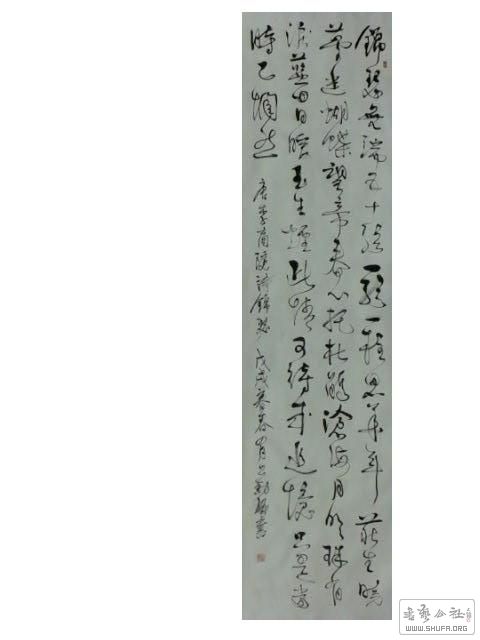 錦瑟無端五十弦一弦一柱思華年莊生曉
夢迷蝴蝶望帝春心托杜鵑滄海月明珠有
淚藍田日暖玉生煙此情可待成追憶只是當
時已惘然
唐李商隱詩錦瑟 戊戌暮春
書法公社
WWW.SHUFA.ORG